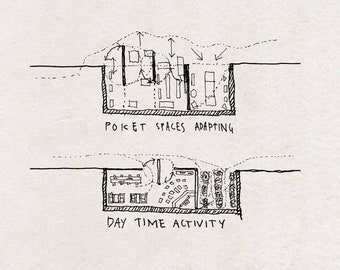 POKET SPACES ADAPTING
DAY TIME ACTIVITY